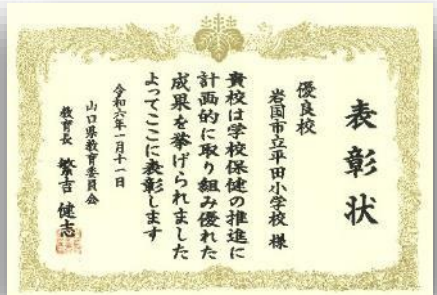 表彰状
優良校
岩国市立平田小学校 様
貴校は学校保健の推進に
計画的に取り組み優れた
成果を挙げられました
よってここに表彰します
令和六年一月十一日
山口県教育委員会
教育長 繁吉 健志